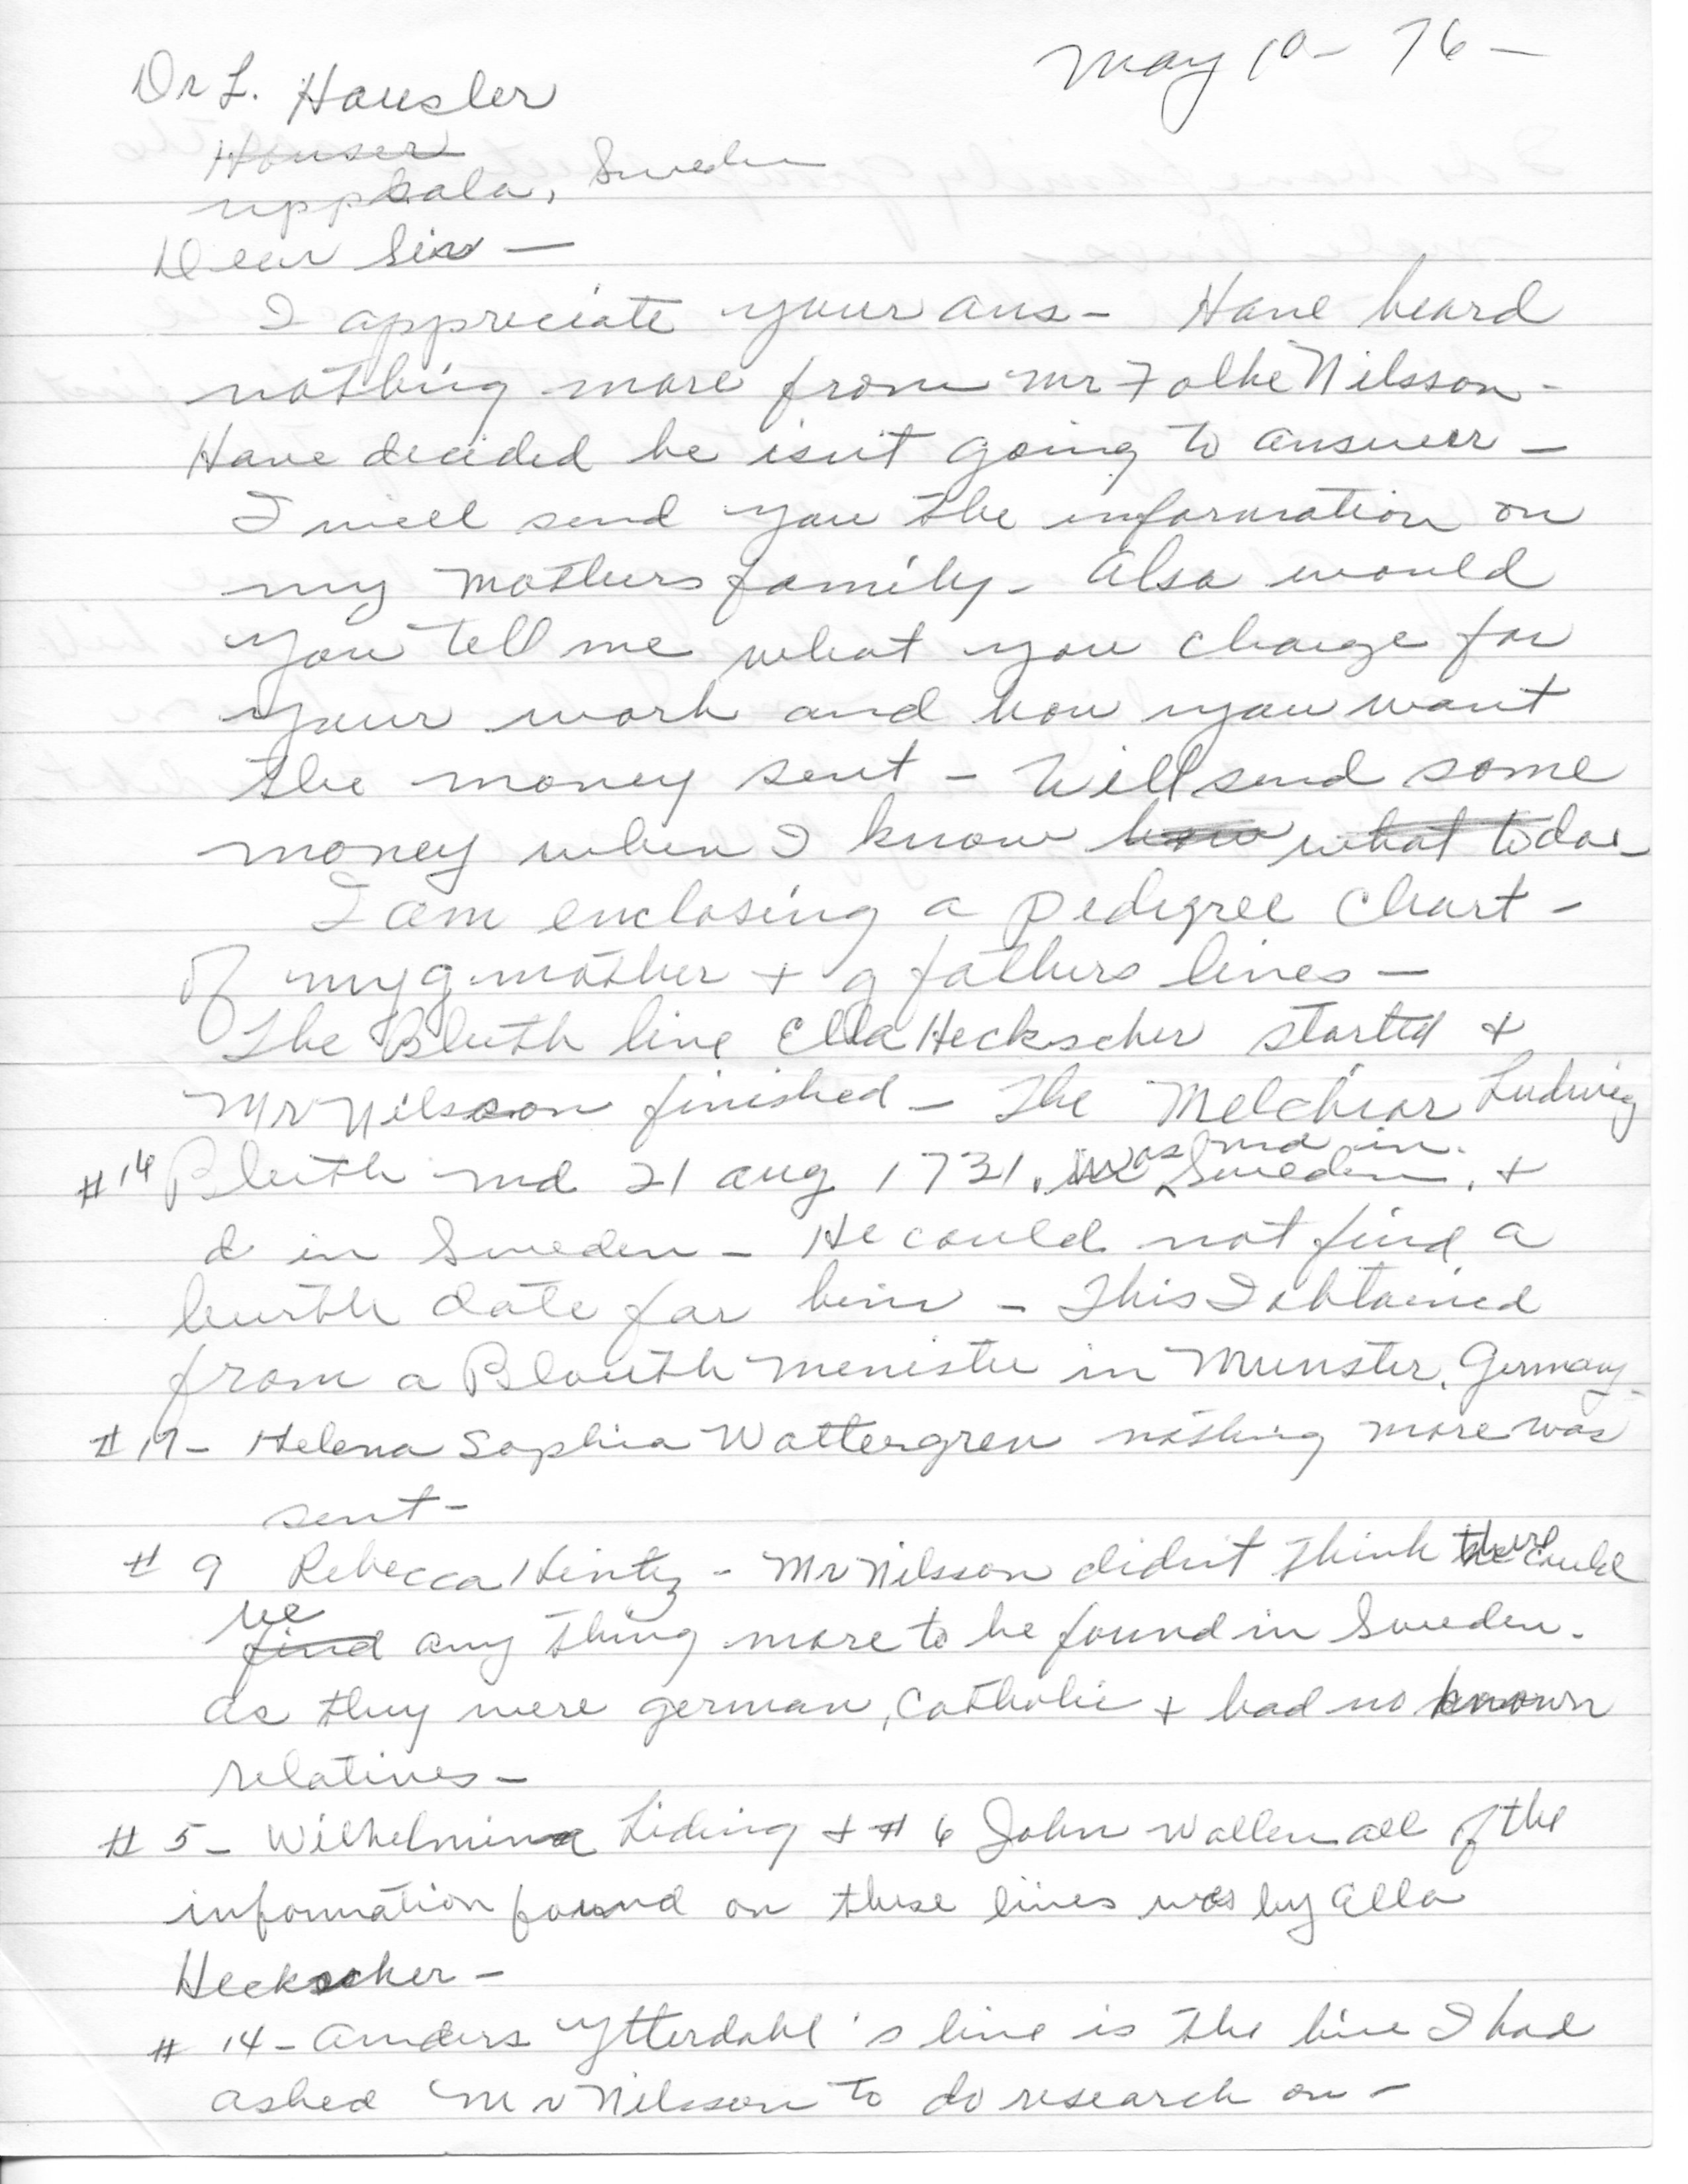 May 10 - 76 -
Dr L. Hausler
Houser
Uppsala, Sweden
Dear Sir -
I appreciate your ans - Have heard
nothing more from Mr Folke Nilsson -
Have decided he isn't going to answer -
I will send you the information on
my mothers family - Also would
you tell me what you charge for
your work and how you want
the money sent - Will send some
money when I know how what to do -
I am enclosing a pedigree chart -
of my g. mother + g fathers lines -
The Bluth line Ella Heckscher started +
Mr Nilsson finished - The Melchior Ludwig
#16 Bluth md 21 aug 1731. was md in Sweden, +
d in Sweden - He could not find a
birth date for him - This I obtained
from a Blouth menister in Munster, Germany -
#17 - Helena Sophia Wattergren nothing more was
sent -
# 9 Rebecca Hintz - Mr Nilsson didn't think there could
be
find any thing more to be found in Sweden.
as they were german, Catholic + had no known
relatives -
# 5 - Wilhelmina Liding + # 6 John Wallen all of the
information found on these lines was by Ella
Heckscher -
# 14 - Anders Ytterdahl's line is the line I had
asked Mr Nilsson to do research on -